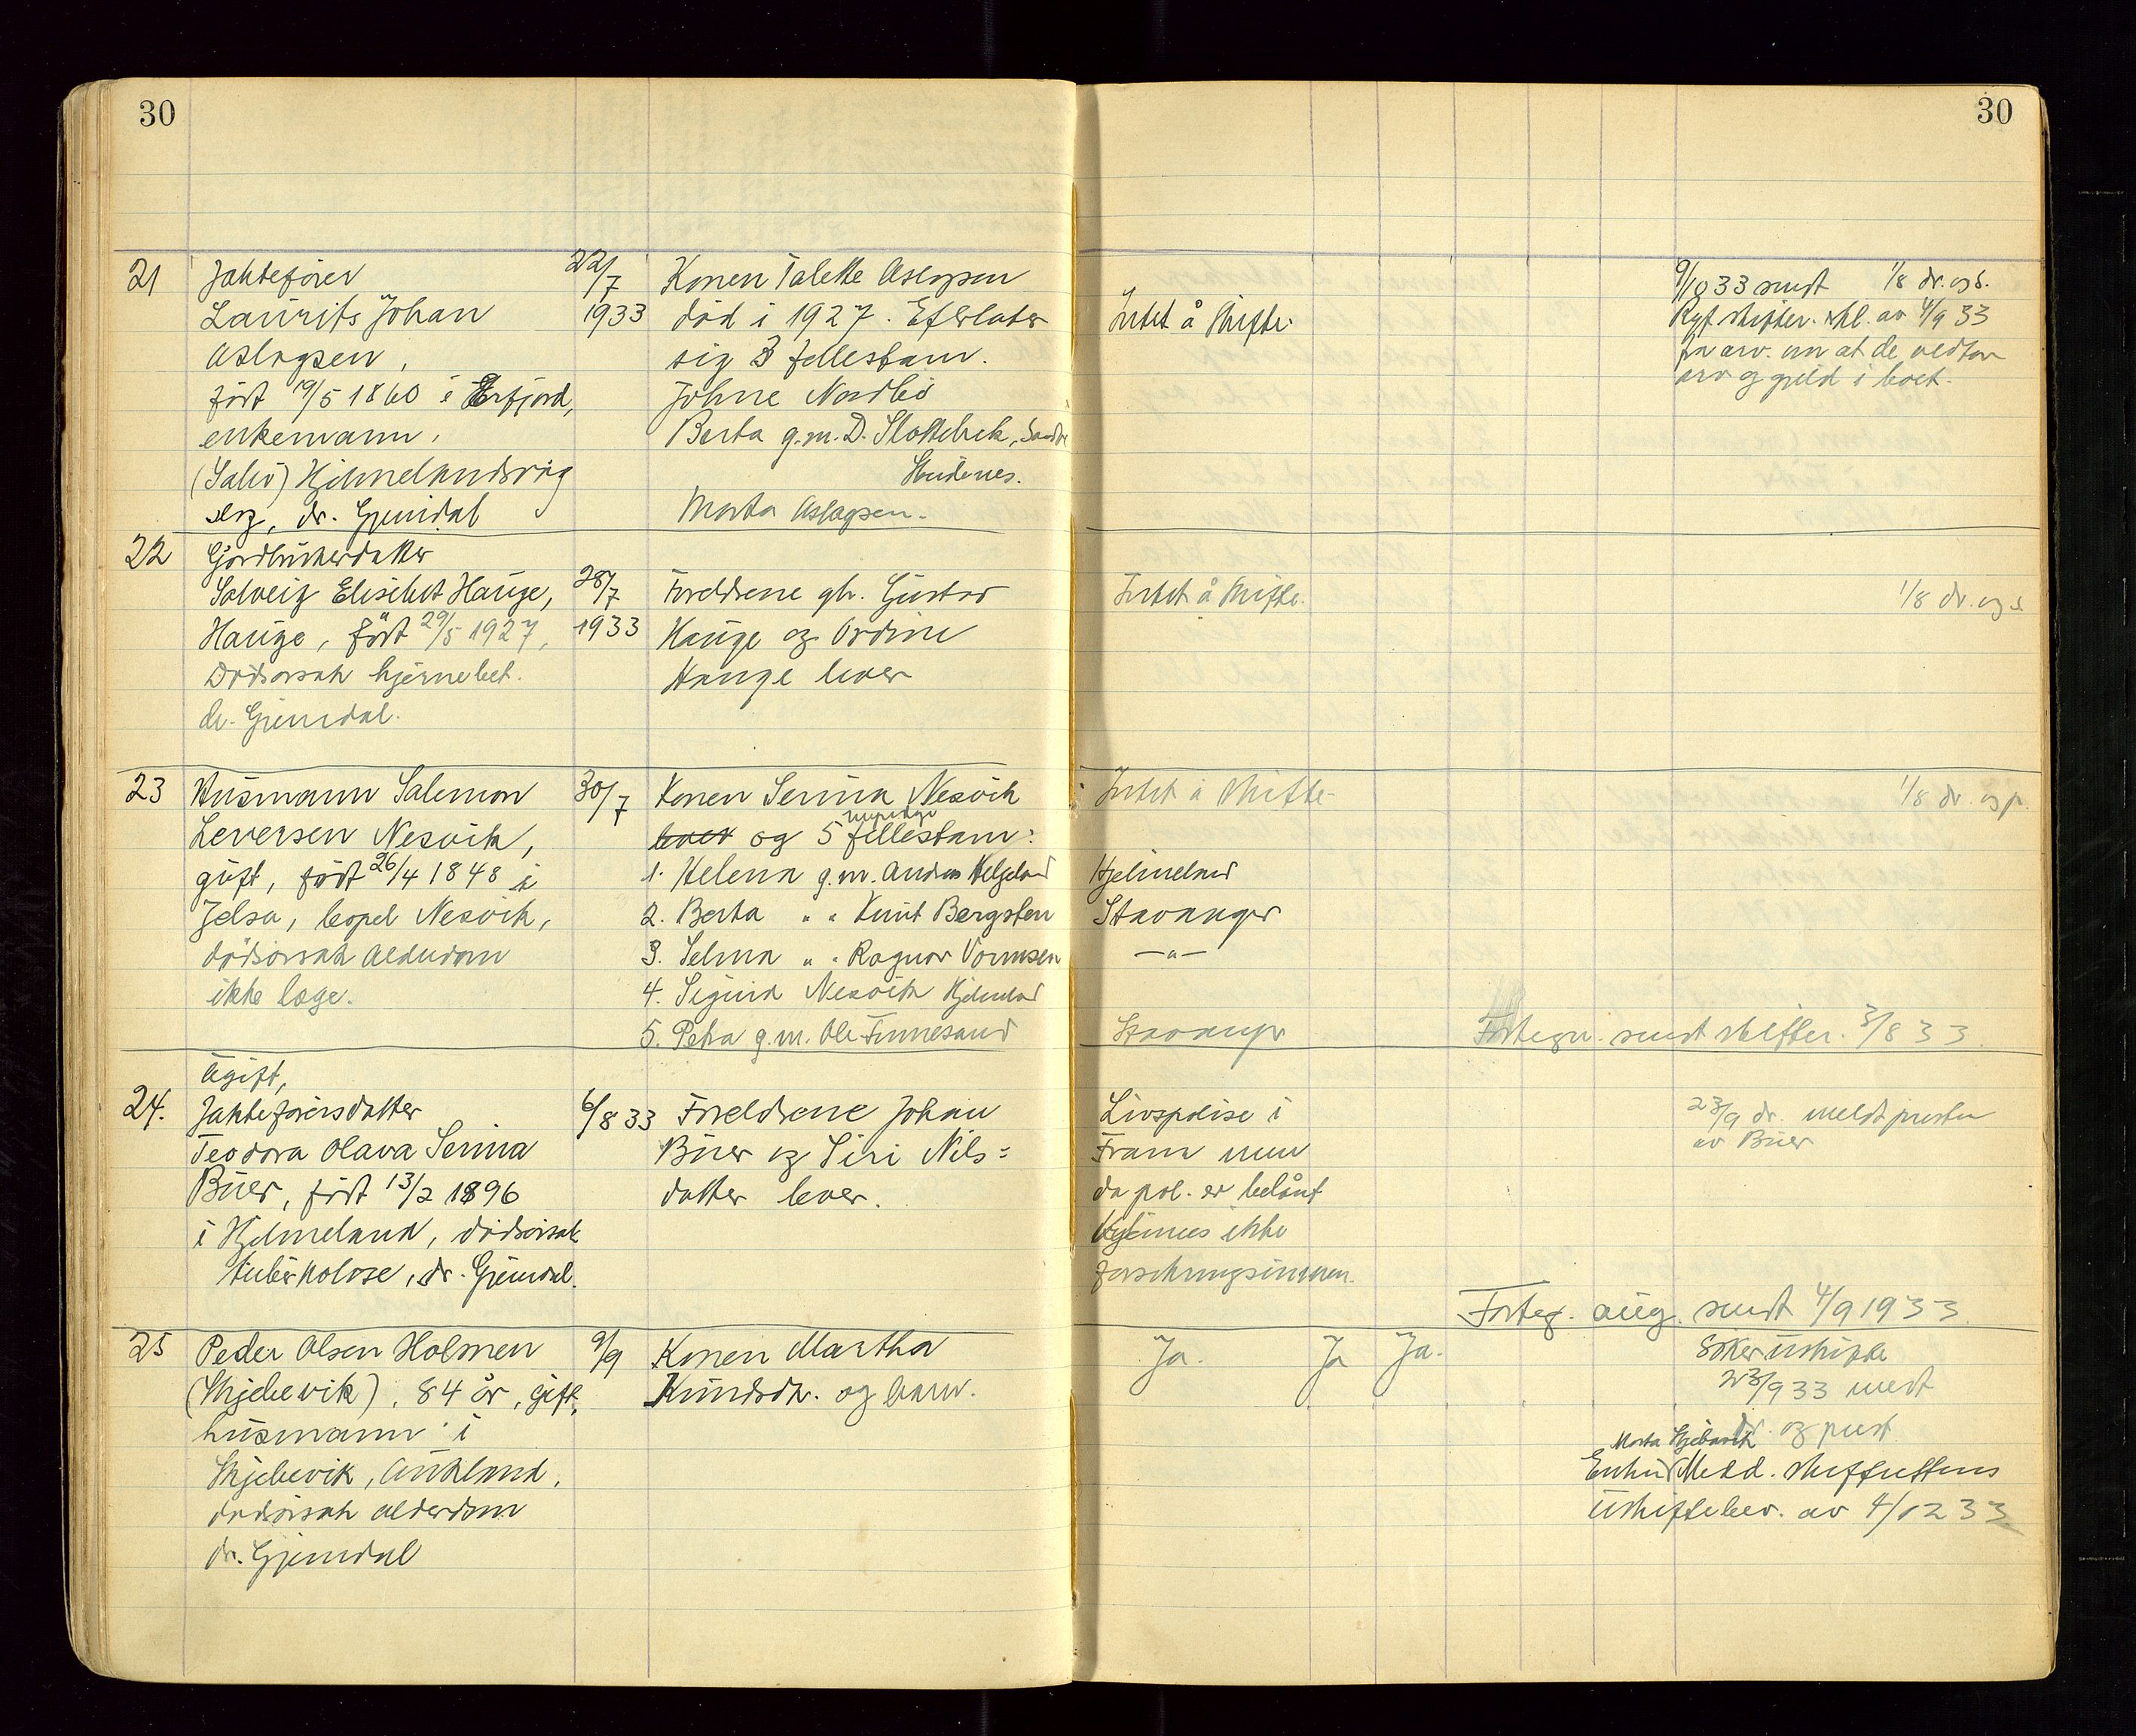 30
30
21 Jakteförer
Laurits Johan
Aslagsen,
född 19/5 1860 i Erfjord,
enkemann,
(Sabö) Hjelmelandsvåg
slag, dr. Gjemdal
22/7
1933
Konen Talette Aslagsen
död i 1927. Efterlater
sig 3 fellesbarn.
Johne Nordbö
Berta g.m. D. Slottebrek, Sandve
Skudenes.
Marta Aslagsen.
Intet å skifte.
9/10 33 sendt
1/8 dr. og s.
Ryf. skifter. skl. av 4/9 33
fra arv. om at de vedtar
arv og gjeld i boet.
22 Gårdbrukerdatter
Solveig Elisabet Hauge,
Hauge, född 29/5 1927,
Dödsorsak hjernebet.
dr. Gjemdal.
28/7
1933
Foreldrene gbr. Gustav
Hauge og Ordine
Hauge lever
Intet å skifte.
1/8 dr. og s
23 Husmann Salemon
Leversen Nesvik,
gift, född 26/4 1848 i
Jelsa, bopel Nesvik,
dödsorsak alderdom
ikke læge.
30/7
Konen Serina Nesvik
lever og 5 fellesbarn:
myndige
1. Helena g.m. Andras Helgeland
2. Berta " " Knut Bergsten
3. Selma " " Ragnar Vormsen
4. Sigurd Nesvik Hjelmeland
5. Petra g.m. Ole Finnesand
Intet å skifte.
Hjelmeland
Stavanger
— " —
Stavanger
1/8 dr. og p.
Fortegn. sendt skifter. 3/8 33.
Ugift,
24. Jakteförersdatter
Teodora Olava Serina
Büer, född 13/2 1896
i Hjelmeland, dödsorsak
tuberkolose, dr. Gjemdal.
6/8 33
Foreldrene Johan
Büer og Siri Nils=
datter lever.
Livspolise i
Fram men
da pol. er belånt
utgjennes ikke
forsikringssummen.
23/9 dr. meldt presten
av Büer
Forteg. aug. sendt 4/9 1933.
25 Peder Olsen Holmen
(Skjebevik), 84 år, gift,
husmann i
Skjebevik, Aukland,
dödsorsak alderdom
dr. Gjemdal
9/9
Konen Martha
Knudsdr. og barn.
Ja.
Ja
Ja.
Söker uskifte
23/9 33 medt
dr. og prest
Marta Skjebevik
Enken Medd. skifterettens
uskiftebev. av 4/12 33